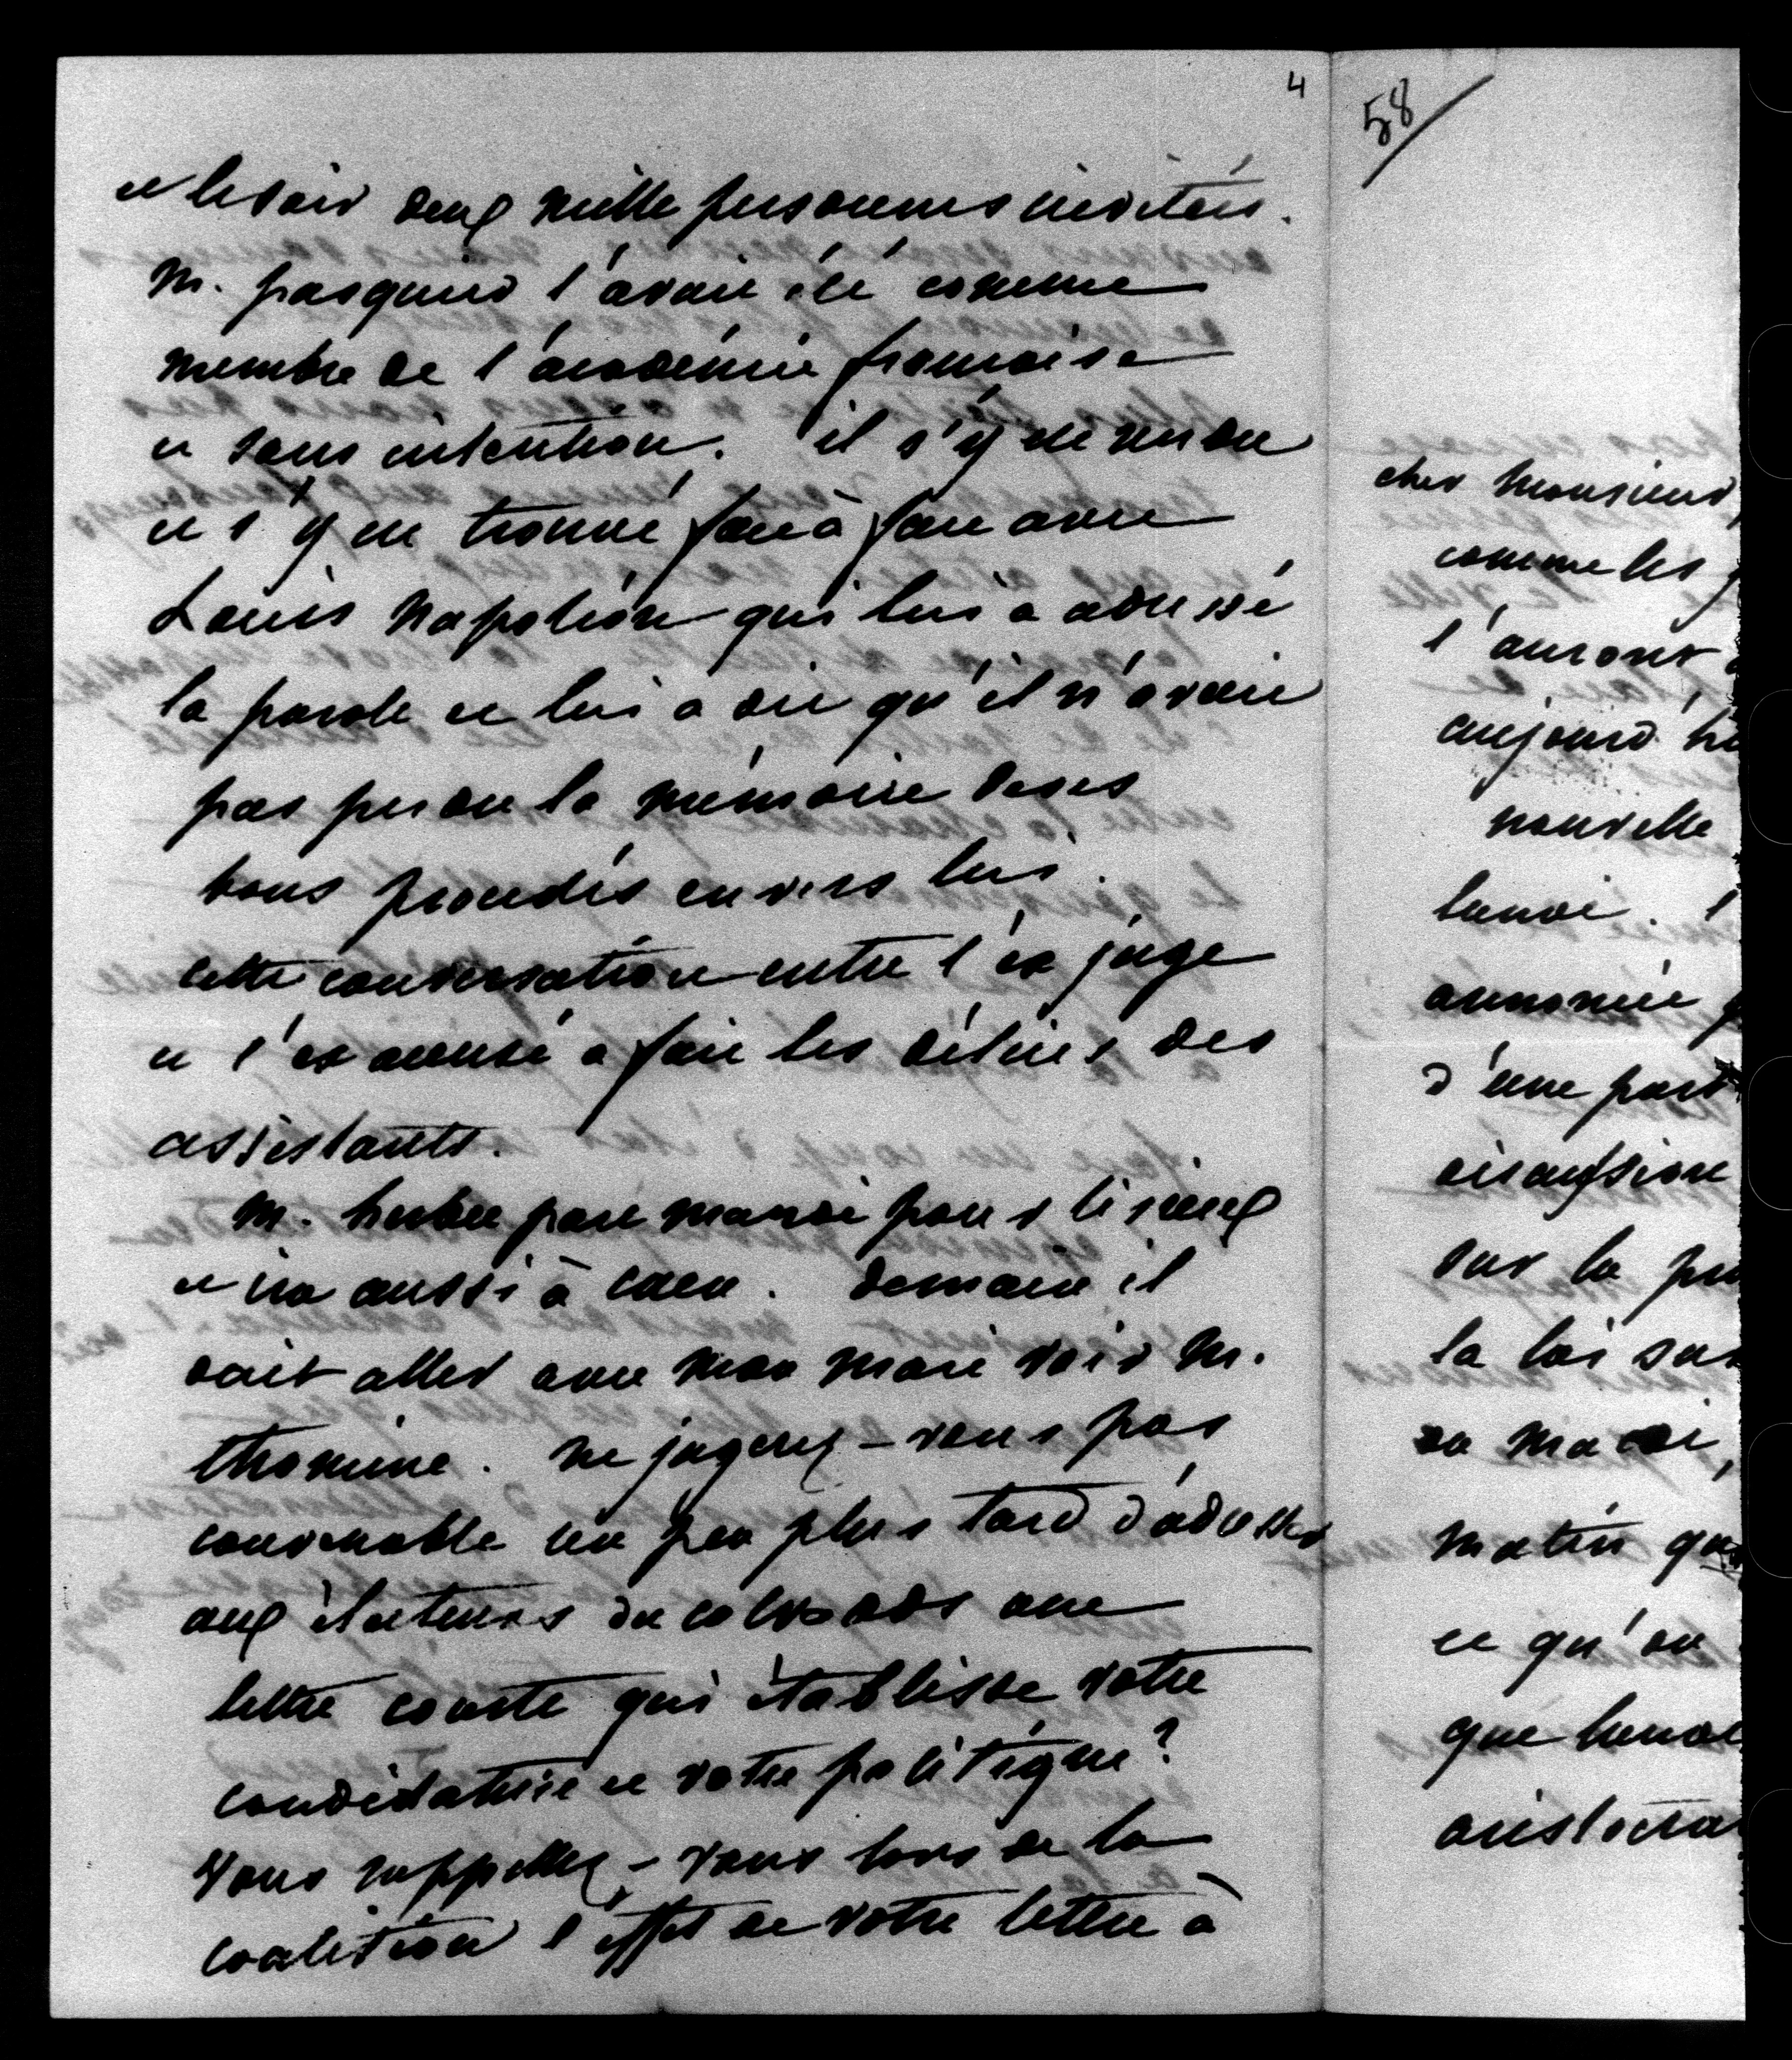 4
et le soir deux mille personnes invitées.
M. pasquier l'avait été comme
membre de l'académie française
et sans intention. il s'y est rendu
et s'y est trouvé face à face avec
Louis Napoléon qui lui a adressé
la parole et lui a dit qu'il n'avait
pas perdu la mémoire de ses
bons procédés envers lui.
cette conversation entre l'ex juge
et l'ex accusé a fait les délices des
assistants.
M. herbet part mardi pour lisieux
et ira aussi à caen. Demain il
doit aller avec mon mari voir M.
thomine. ne jugerez-vous pas
convenable un peu plus tard d'adresser
aux électeurs du calvados une
lettre courte qui établisse votre
candidature et votre politique?
Vous rappellez-vous lors de la
coalition l'effet de votre lettre à
58
cher monsieur,
comme les
l'auront
aujourd'hu
nouvelle
lundi.
annoncé
d'une part
discussion
sur la
la loi sur
mardi,
matin qu
ce qu'on
que
aristocra